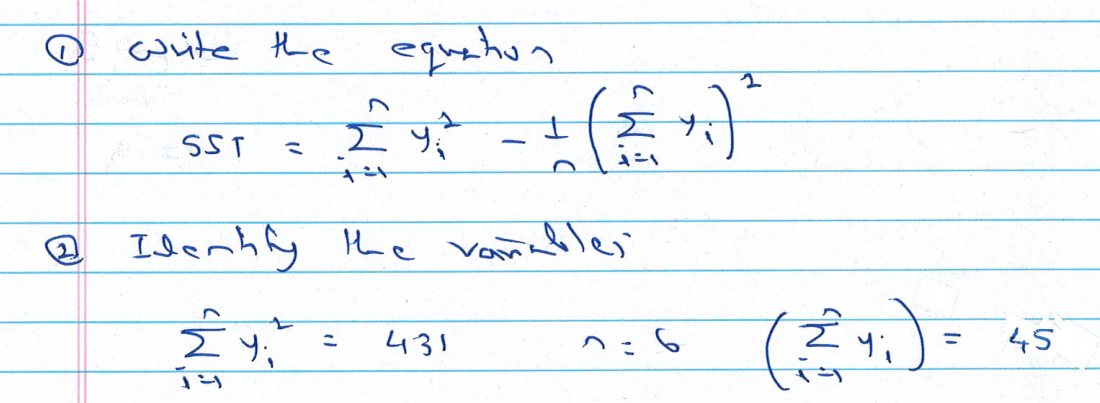 ① Write the equation
SST = \sum_{i=1}^{n} y_i^2 - \frac{1}{n} \left( \sum_{i=1}^{n} y_i \right)^2
② Identify the variables
\sum_{i=1}^{n} y_i^2 = 431    n = 6    \left( \sum_{i=1}^{n} y_i \right) = 45